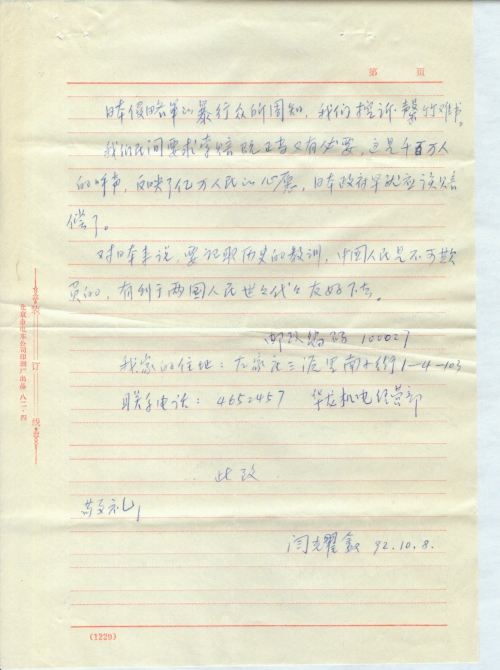 第 页
日本侵略军的暴行众所周知,我们控诉罄竹难书。
我们民间要求索赔既正当又有必要,这是千百万人
的呼声,反映了亿万人民的心愿,日本政府早就应该赔
偿了。
对日本来说,要记取历史的教训,中国人民是不可欺
负的,有利于两国人民世世代代友好下去。
邮政编码 100027
我家的住址:左家庄三源里南小街1-4-103
联系电话:4652457 华龙机电经营部
此致
敬礼!
闫志耀 92.10.8.
装 订 线
北京市电车公司印刷厂出品 八二·四
(1229)